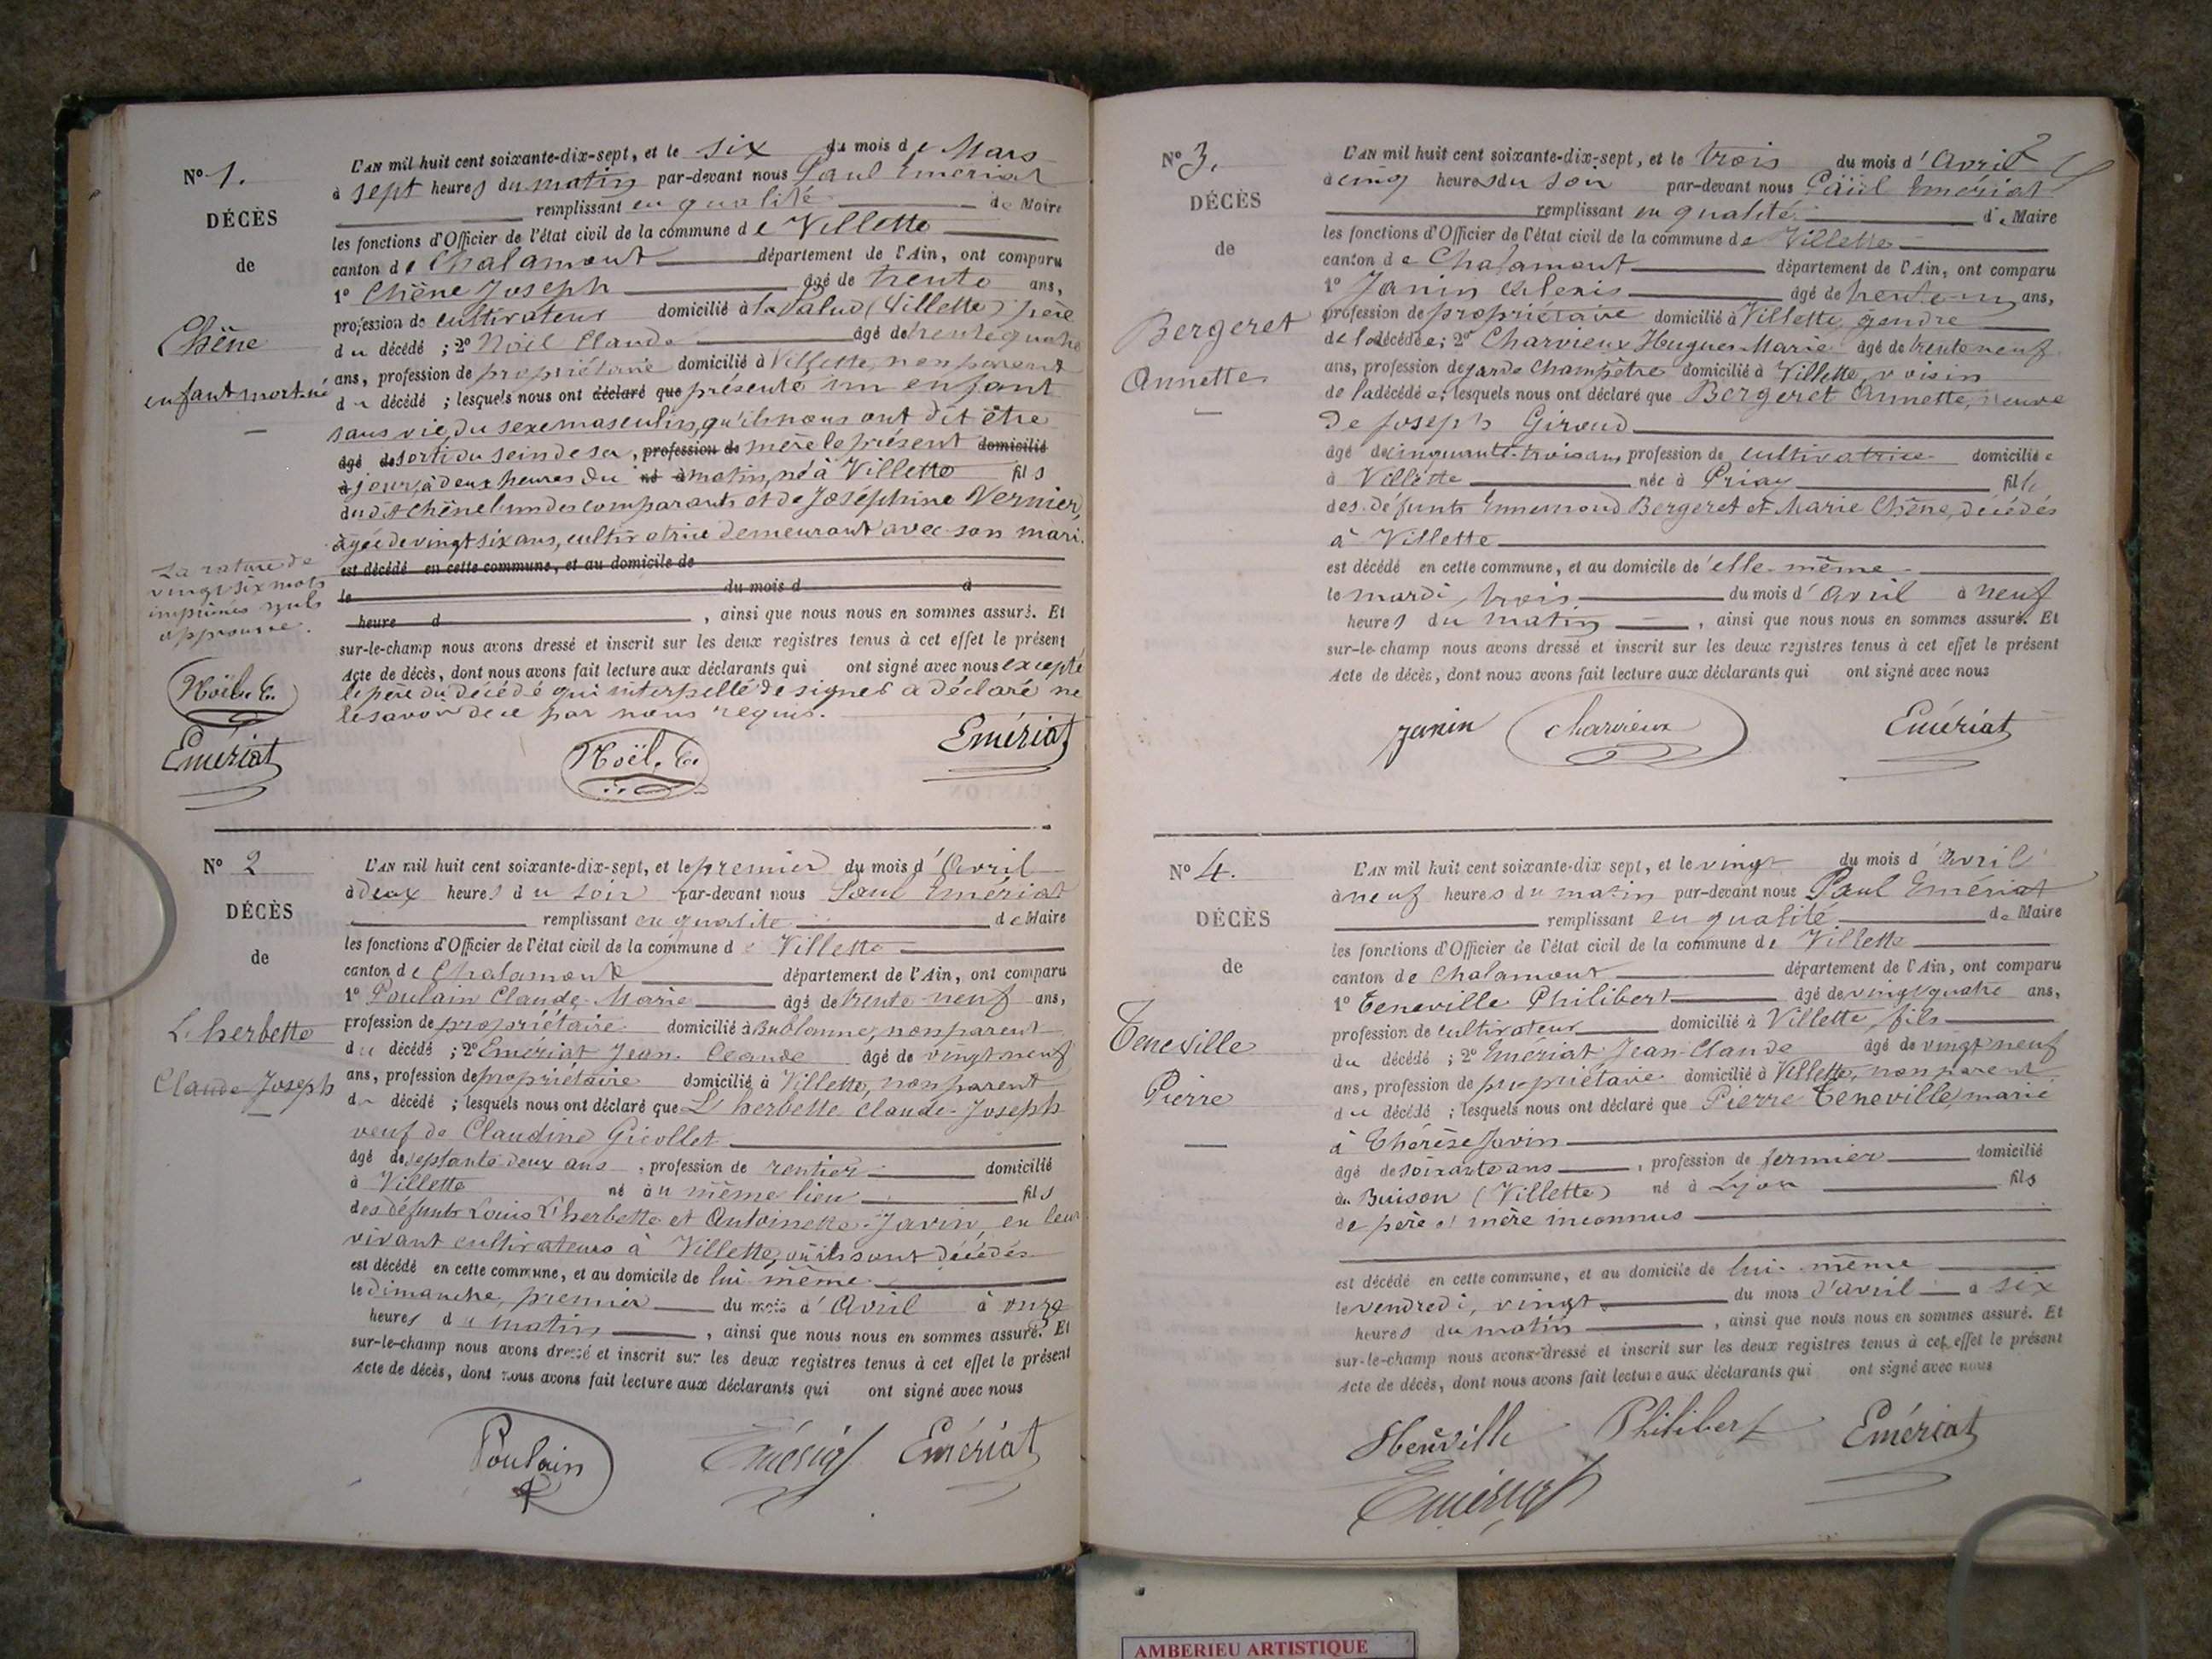 N° 1.
DÉCÈS
de
Chêne
enfant mort-né
La rature de
vingt six mots
imprimés nuls
approuvée.
Noël. C.
Emériat
L'AN mil huit cent soixante-dix-sept, et le six du mois de Mars
à sept heures du matin par-devant nous Paul Emériat
remplissant en qualité de Maire
les fonctions d'Officier de l'état civil de la commune de Villette
canton de Chalamont département de l'Ain, ont comparu
1° Chêne Joseph âgé de trente ans,
profession de cultivateur domicilié à la Palud (Villette) père
du décédé ; 2° Noël Claude âgé de trente quatre
ans, profession de propriétaire domicilié à Villette, non parent
du décédé ; lesquels nous ont déclaré que présenté un enfant
sans vie, du sexe masculin, qu'ils nous ont dit être
âgé de sorti du sein de sa , profession de mère le présent domicilié
à jour, à deux heures du né à matin, né à Villette fils
du dit Chêne l'un des comparants et de Joséphine Vernier,
âgée de vingt six ans, cultivatrice demeurant avec son mari.
est décédé en cette commune, et au domicile de
le du mois d à
heure d , ainsi que nous nous en sommes assuré. Et
sur-le-champ nous avons dressé et inscrit sur les deux registres tenus à cet effet le présent
Acte de décès, dont nous avons fait lecture aux déclarants qui ont signé avec nous excepté
le père du décédé qui interpellé de signer a déclaré ne
le savoir de ce par nous requis.
Noël. C.
Emériat
N° 2
DÉCÈS
de
L'herbette
Claude-Joseph
L'AN mil huit cent soixante-dix-sept, et le premier du mois d'Avril
à deux heures du soir par-devant nous Paul Emériat
remplissant en qualité de Maire
les fonctions d'Officier de l'état civil de la commune de Villette
canton de Chalamont département de l'Ain, ont comparu
1° Poulain Claude-Marie âgé de trente-neuf ans,
profession de propriétaire domicilié à Bublanne, non parent
du décédé ; 2° Emériat Jean-Claude âgé de vingt neuf
ans, profession de propriétaire domicilié à Villette, non parent
du décédé ; lesquels nous ont déclaré que L'herbette Claude-Joseph
veuf de Claudine Gicollet
âgé de septante deux ans , profession de rentier domicilié
à Villette né au même lieu fils
des défunts Louis L'herbette et Antoinette Javin, en leur
vivant cultivateurs à Villette, où ils sont décédés
est décédé en cette commune, et au domicile de lui même
le dimanche, premier du mois d'Avril à onze
heures du matin , ainsi que nous nous en sommes assuré. Et
sur-le-champ nous avons dressé et inscrit sur les deux registres tenus à cet effet le présent
Acte de décès, dont nous avons fait lecture aux déclarants qui ont signé avec nous
Poulain Emériat Emériat
2
N° 3.
DÉCÈS
de
Bergeret
Annette
L'AN mil huit cent soixante-dix-sept, et le trois du mois d'Avril
à cinq heures du soir par-devant nous Paul Emériat
remplissant en qualité de Maire
les fonctions d'Officier de l'état civil de la commune de Villette
canton de Chalamont département de l'Ain, ont comparu
1° Janin Alexis âgé de trente un ans,
profession de propriétaire domicilié à Villette, gendre
de la décédée ; 2° Charvieux Hugues-Marie âgé de trente neuf
ans, profession de garde champêtre domicilié à Villette, voisin
de la décédée ; lesquels nous ont déclaré que Bergeret Annette, veuve
de Joseph Giroud
âgé de cinquante-trois ans, profession de cultivatrice domiciliée
à Villette née à Priay fille
des défunts Ennemond Bergeret et Marie Chêne, décédés
à Villette
est décédé en cette commune, et au domicile d'elle-même
le mardi, trois du mois d'Avril à neuf
heures du matin , ainsi que nous nous en sommes assuré. Et
sur-le-champ nous avons dressé et inscrit sur les deux registres tenus à cet effet le présent
Acte de décès, dont nous avons fait lecture aux déclarants qui ont signé avec nous
janin charvieux Emériat
N° 4.
DÉCÈS
de
Teneville
Pierre
L'AN mil huit cent soixante-dix sept, et le vingt du mois d'Avril
à neuf heures du matin par-devant nous Paul Emériat
remplissant en qualité de Maire
les fonctions d'Officier de l'état civil de la commune de Villette
canton de Chalamont département de l'Ain, ont comparu
1° Teneville Philibert âgé de vingt quatre ans,
profession de cultivateur domicilié à Villette, fils
du décédé ; 2° Emériat Jean-Claude âgé de vingt neuf
ans, profession de propriétaire domicilié à Villette, non parent
du décédé ; lesquels nous ont déclaré que Pierre Teneville, marié
à Thérèse Javin
âgé de soixante ans , profession de fermier domicilié
au Buison (Villette) né à Lyon fils
de père et mère inconnus
est décédé en cette commune, et au domicile de lui-même
le vendredi, vingt du mois d'avril à six
heures du matin , ainsi que nous nous en sommes assuré. Et
sur-le-champ nous avons dressé et inscrit sur les deux registres tenus à cet effet le présent
Acte de décès, dont nous avons fait lecture aux déclarants qui ont signé avec nous
Philibert Emériat
Emériat
AMBERIEU ARTISTIQUE